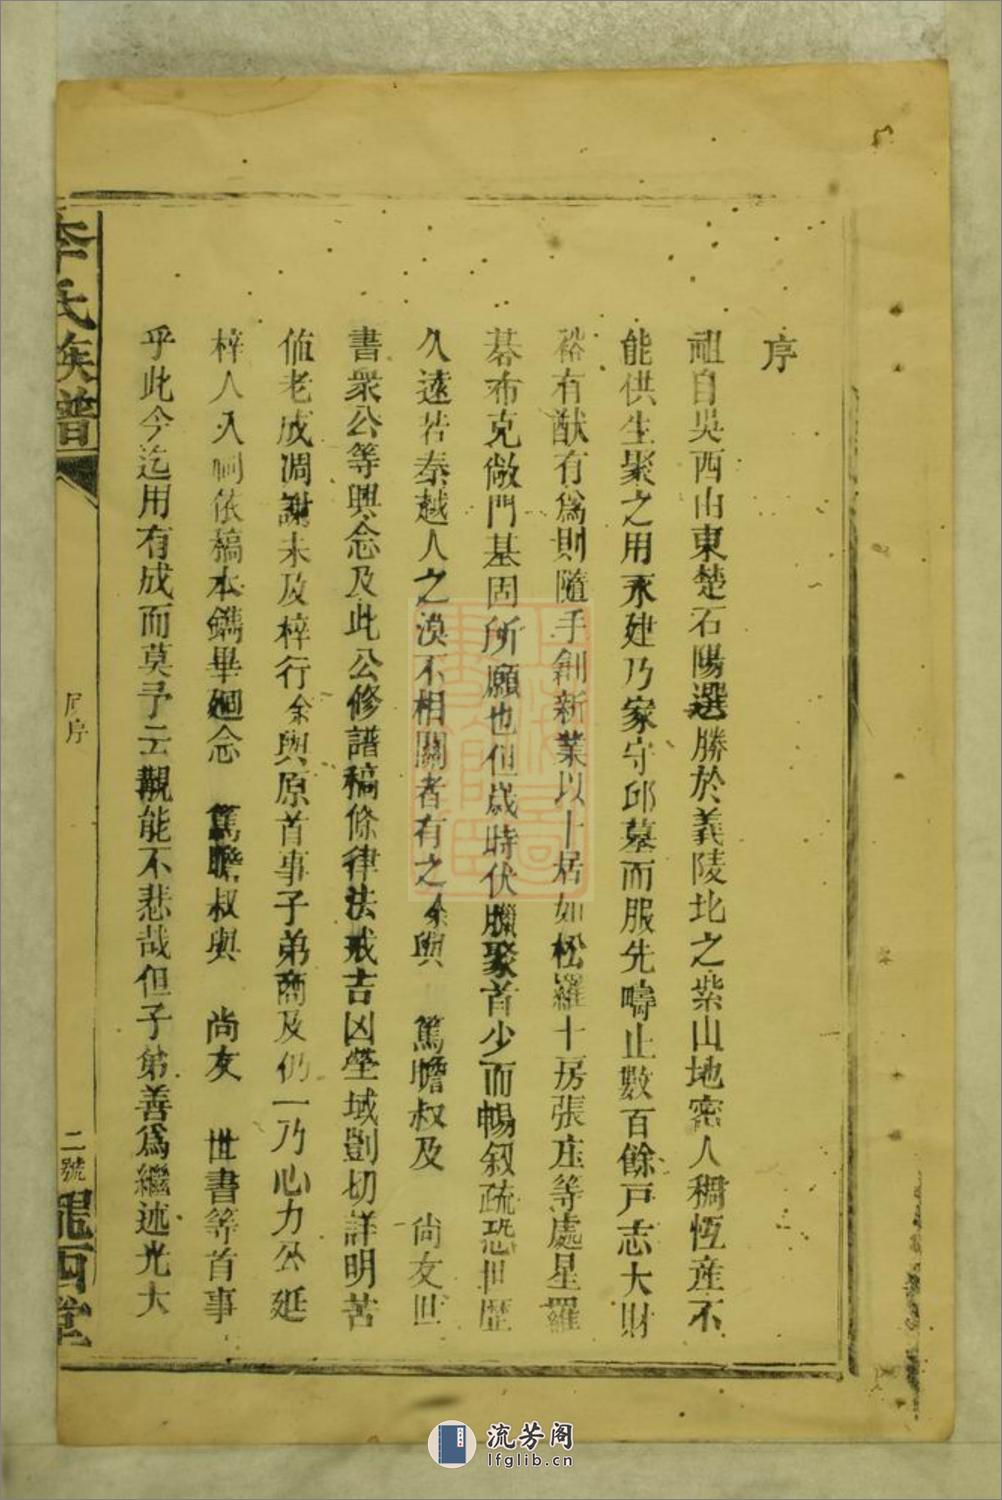 序
祖自吳西山東楚石陽選勝於義陵北之紫山地密人稠恆產不
能供生聚之用永建乃家守邱墓而服先疇止數百餘戶志大財
裕有猷有為則隨手創新業以十居如松羅十房張庄等處星羅
碁布克敞門基固所願也但歲時伏臘聚首少而暢叙疏恐世歷
久遠若秦越人之漠不相關者有之余與 篤瞻叔及 尚友世
書眾公等興念及此公修譜稿條律法戒吉凶塋域剴切詳明苦
值老成凋謝未及梓行余與原首事子弟商及仍一乃心力公延
梓人入祠依稿本鐫畢廻念 篤瞻叔與 尚友 世書等首事
乎此今迄用有成而莫予云覯能不悲哉但子弟善為繼述光大
李氏族譜
序
二號
隴西堂
流芳阁
lfglib.cn